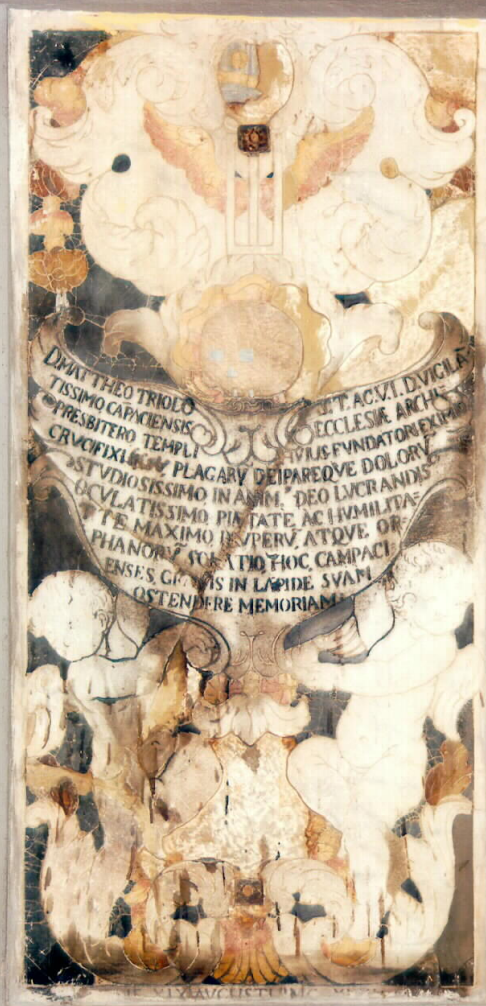 D. MATTHEO TRIOLO I.T. AC V.I. D. VIGILĀ=
TISSIMO CAPACIENSIS ECCLESIÆ ARCHI=
PRESBITERO TEMPLI FUNDATORI EXIMIO
CRVCIFIXI PLAGARV̄ DEIPAREQVE DOLORV̄
STVDIOSISSIMO IN ANIM. DEO LVCRANDIS
OCVLATISSIMO PIETATE, AC HVMILITA=
TE MAXIMO PAVPERV̄ ATQVE OR=
PHANORV̄ HOC, CAMPACI
ENSES, IN LAPIDE SVAM
OSTENDERE MEMORIAM
XIX AVGVSTI